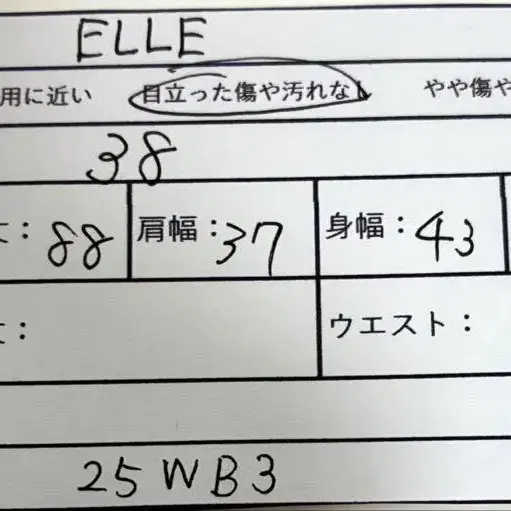 ELLE
用に近い 目立った傷や汚れなし やや傷や
38
丈：88 肩幅：37 身幅：43
丈： ウエスト：
25WB3